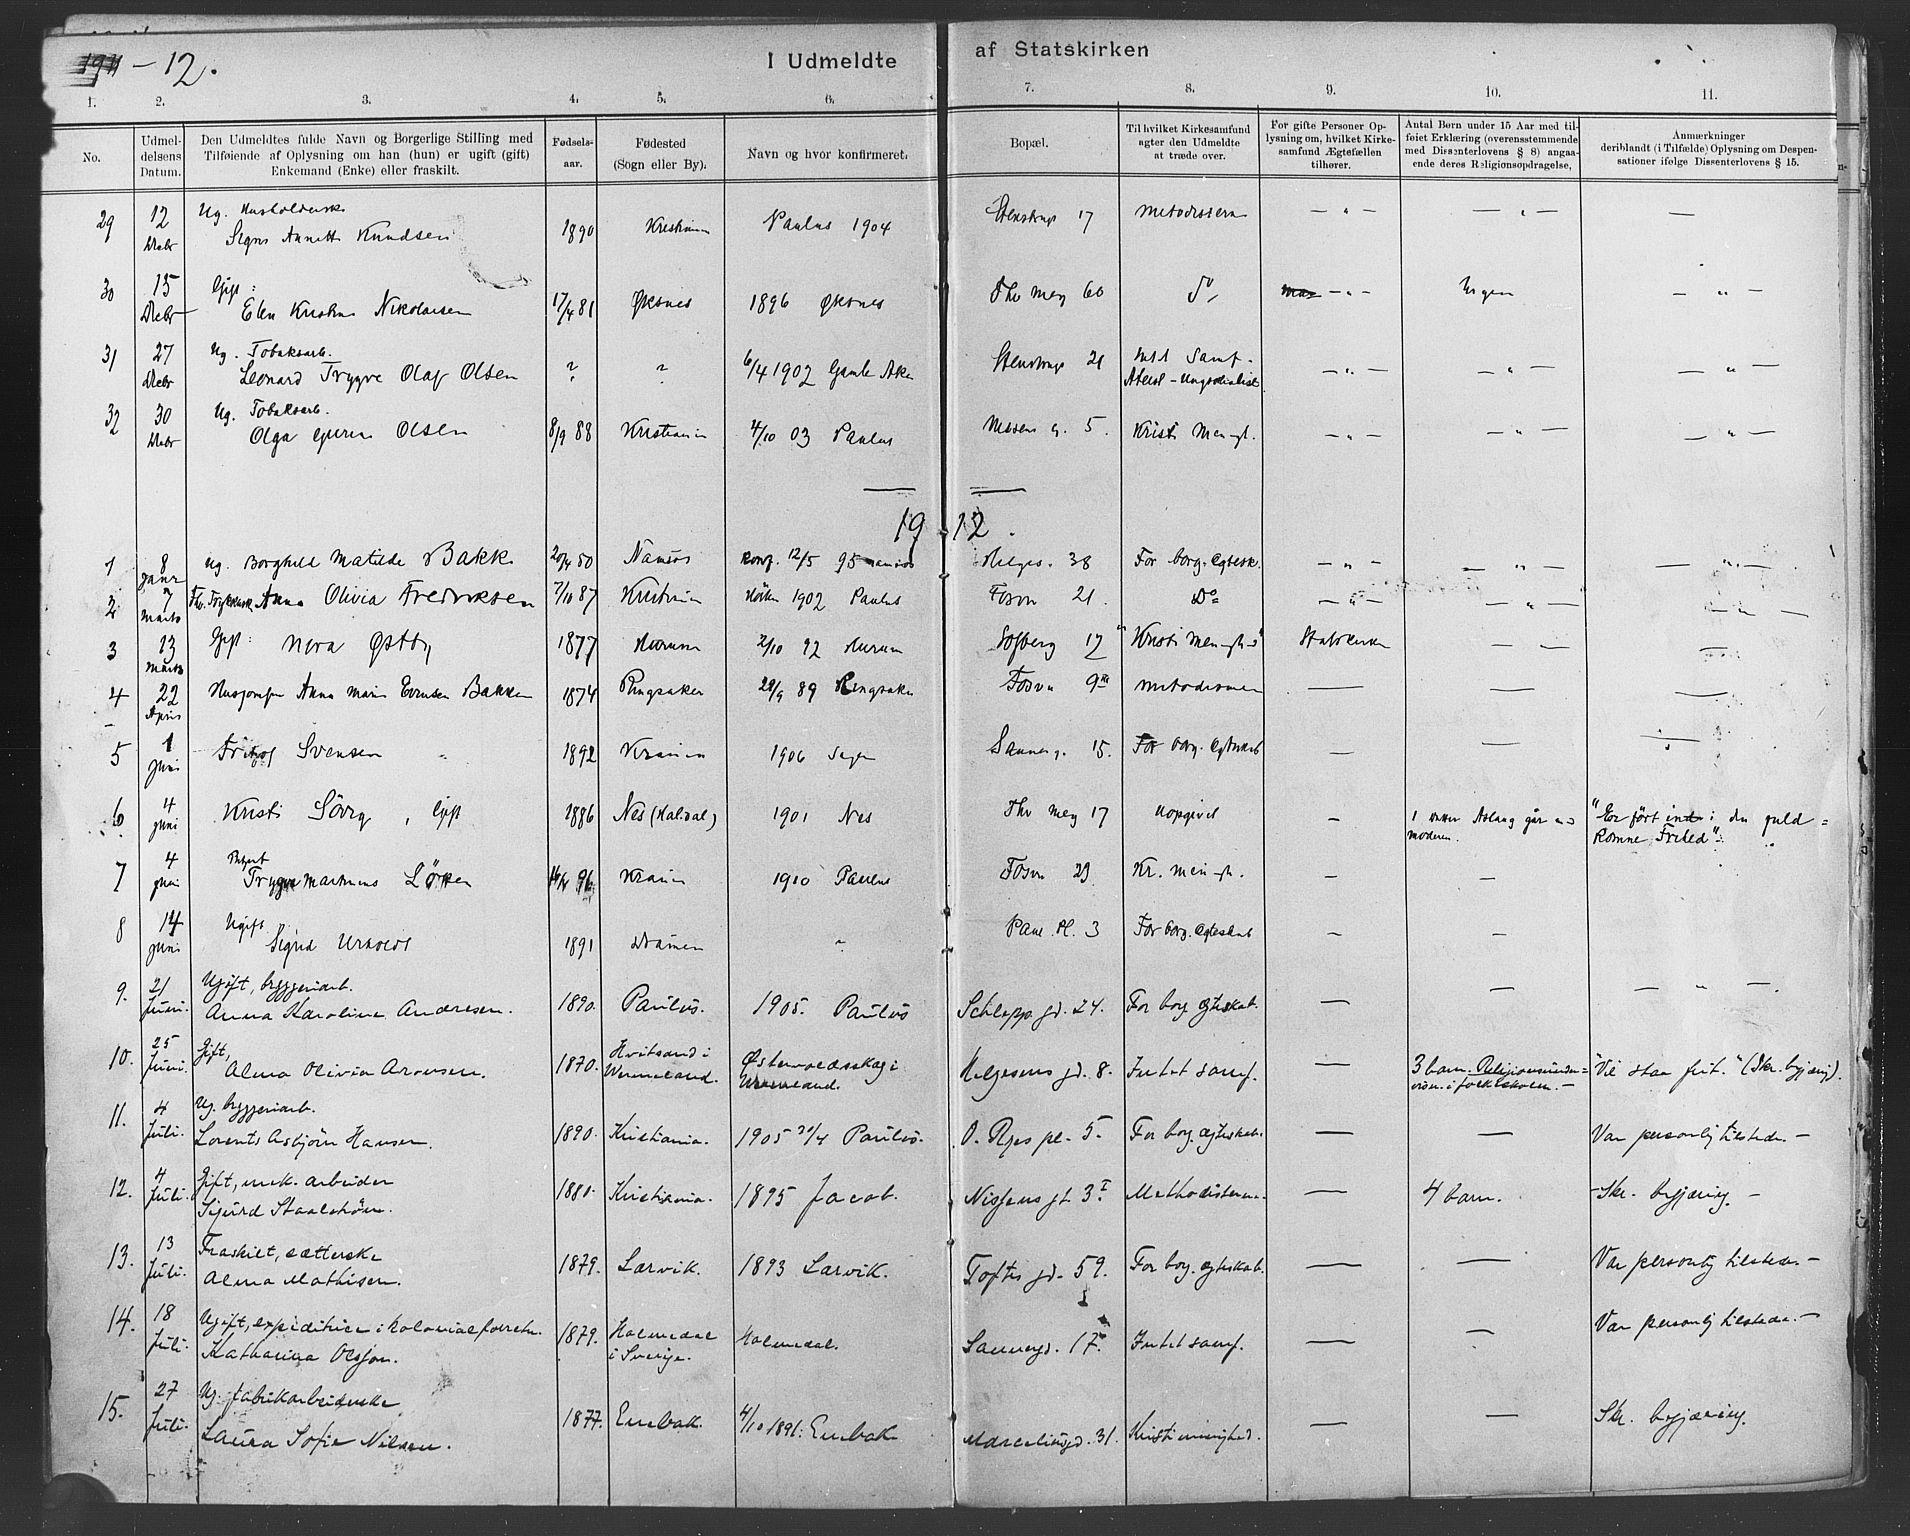 1911 - 12.
I Udmeldte af Statskirken
1. 2. 3. 4. 5. 6. 7. 8. 9. 10. 11.
No.
Udmel-
delsens
Datum.
Den Udmeldtes fulde Navn og Borgerlige Stilling med
Tilføiende af Oplysning om han (hun) er ugift (gift)
Enkemand (Enke) eller fraskilt.
Fødsels-
aar.
Fødested
(Sogn eller By).
Navn og hvor konfirmeret.
Bopæl.
Til hvilket Kirkesamfund
agter den Udmeldte
at træde over.
For gifte Personer Op-
lysning om, hvilket Kirke-
samfund Ægtefællen
tilhører.
Antal Børn under 15 Aar med til-
føiet Erklæring (overensstemmende
med Dissenterlovens § 8) angaa-
ende deres Religionsopdragelse.
Anmærkninger
deriblandt (i Tilfælde) Oplysning om Despen-
sationer ifølge Dissenterlovens § 15.
29 12 Debr Ug. Husholderske
Signe Annette Knudsen 1890 Kristiania Paulus 1904 Stenstrup 17 metodistern — " — — " — —
30 15 Debr Gift:
Elen Kristine Nikolaisen 17/4 81 Øksnes 1896 Øksnes Thv Mey 60 Do — " — Ingen — " —
31 27 Debr Ug. Tobaksarb.
Leonard Trygve Olaf Olsen ? ? 6/4 1902 Gamle Aker Stenstrup 21 Intet Samf. — " — — " — — " —
32 30 Debr Ug. Tobaksarb.
Olga Olsen 8/9 88 Kristiania 4/10 03 Paulus 5. Kristi Menigh. — " — — " — — " —
1912.
1 8 Janr Ug. Borghild Matilde Bakk Namsos konf. 12/5 95 Namsos Helges. 38 For borg. Egtesk. — " — — " — — " —
2 7 Marts Anna Olivia Fredriksen 7/10 87 Kristiania 1902 Paulus Fosvn 21. Do — " — — " — — " —
3 13 Marts Gift: Nora Østby 1877 Hurum 2/10 92 Hurum Sofberg 17 "Kristi Menigh." Statskirken — — —
4 22 April Anna Marie Evensen Bakken 1874 Ringsaker 28/9 89 Ringsaker Fosvn 9 metodismen — — —
5 1 Juni Fritjof Svensen 1892 Krania 1906 Sagene Sannerg. 15. For borg. Egteskab — — —
6 4 Juni Kristi Sörg, Gift 1886 Nes (Hal.dal) 1901 Nes Thv Mey 17 Uopgivet — 1 datter Aslaug går m.
moderen. "Er ført ind i den guld=
Komne Frihed".
7 4 Juni Trygve Martinius Löken 96 Krania 1910 Paulus Fosvn 29 Kr. menigh. — —
8 14 Juni Ugift
Sigrid 1891 Dramen " Paul. Pl. 3 For borg. Egteskab — —
9. 21 Juni. Ugift, bryggeriarb.
Anna Karoline Andresen. 1890. Paulus. 1905. Paulus Schleppe gd. 24. For borg. egteskab. — — — " —.
10. 25 Juni. Gift,
Alma Olivia Aronsen. 1870. Hvitsand i
Wermeland. Østervaldsskog i
Wermland. Helgesens gd. 8. Intet samf. — 3 barn. Religionsunder=
visn. i folkeskolen. — "Vil staa frit." (Skr. begjæring).
11. 4 Juli. Ug. bryggeriarb.
Lorents Asbjørn Hansen. 1890. Kristiania. 1905 30/4 Paulus. O. Ryes pl. 5. For borg. egteskab. — — Var personlig tilstede. —
12. 4 Juli. Gift, mek. arbeider
Sigurd Staalström. 1880. Kristiania. 1895 Jacob. Nissens gt. 3 I. Methodisterne. — 4 barn. —Skr. begjæring. —
13. 13 Juli. Fraskilt, sætterske
Alma Mathisen. 1879. Larvik. 1893 Larvik. Toftes gd. 59. For borg. egteskab. — — Var personlig tilstede. —
14. 18 Juli. Ugift, expeditrice i kolonialforretn.
Katharina Olsson. 1879. Holmedal
i Sverige. Holmedal. Sannergd. 17. Intet samf. — — Var personlig tilstede. —
15. 27 Juli. Ug. fabrikarbeiderske
Laura Sofie Nilsen. 1877. Enebak. 4/10 1891. Enebak Marcelius gd. 31. Kristi menighed. — — Skr. begjæring.